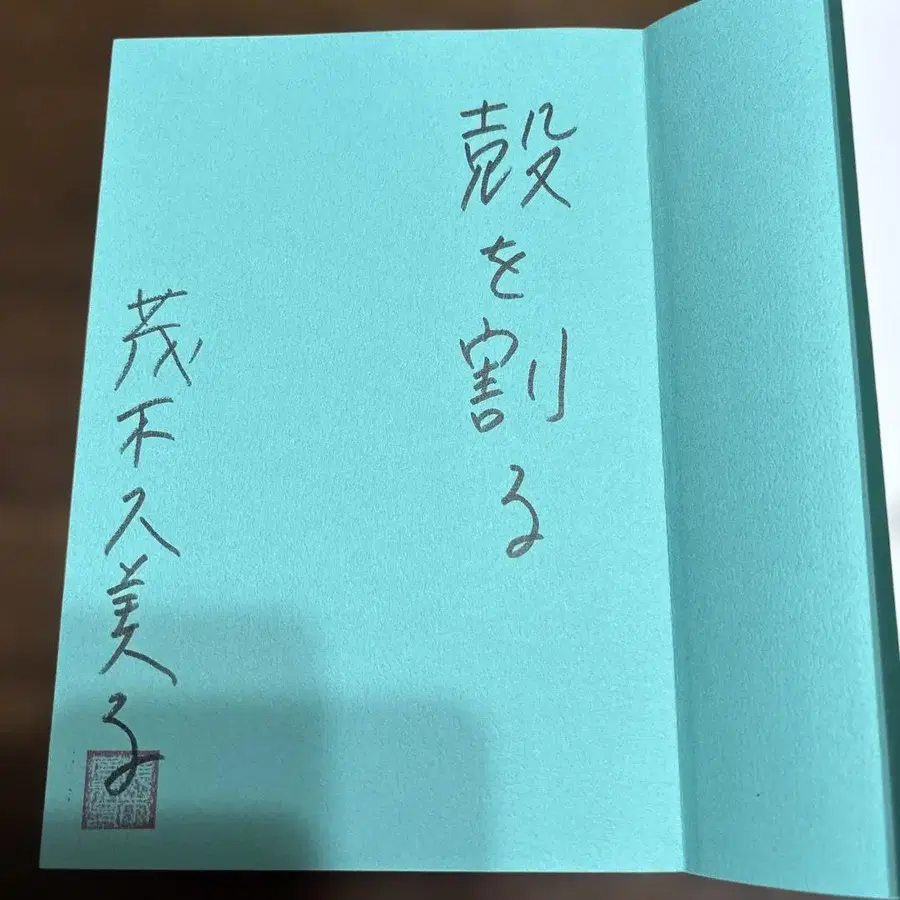 殻を割る
茂木久美子